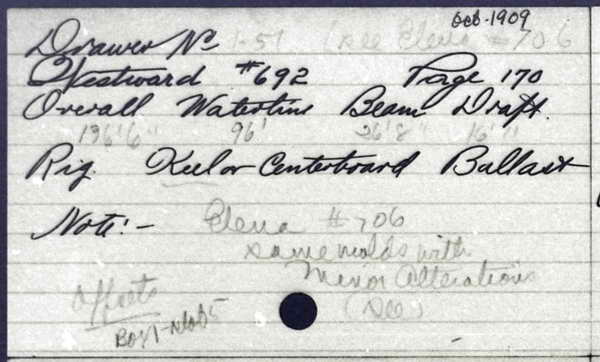 Oct-1909
Drawer No 1-51 (See Elena #706
Westward #692 Page 170
Overall Waterline Beam Draft.
136'6" 96' 26'8" 16'
Rig. Keel or Centerboard Ballast
Note:- Elena #706
same molds with
Minor Alterations
(See)
Offsets